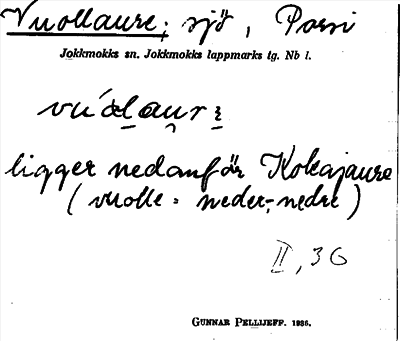 Vuollaure; sjö, Porsi
Jokkmokks sn. Jokkmokks lappmarks tg. Nb l.
ligger nedanför Kokajaure
(vuolle = neder-, nedre)
II, 36
GUNNAR PELLIJEFF. 1936.